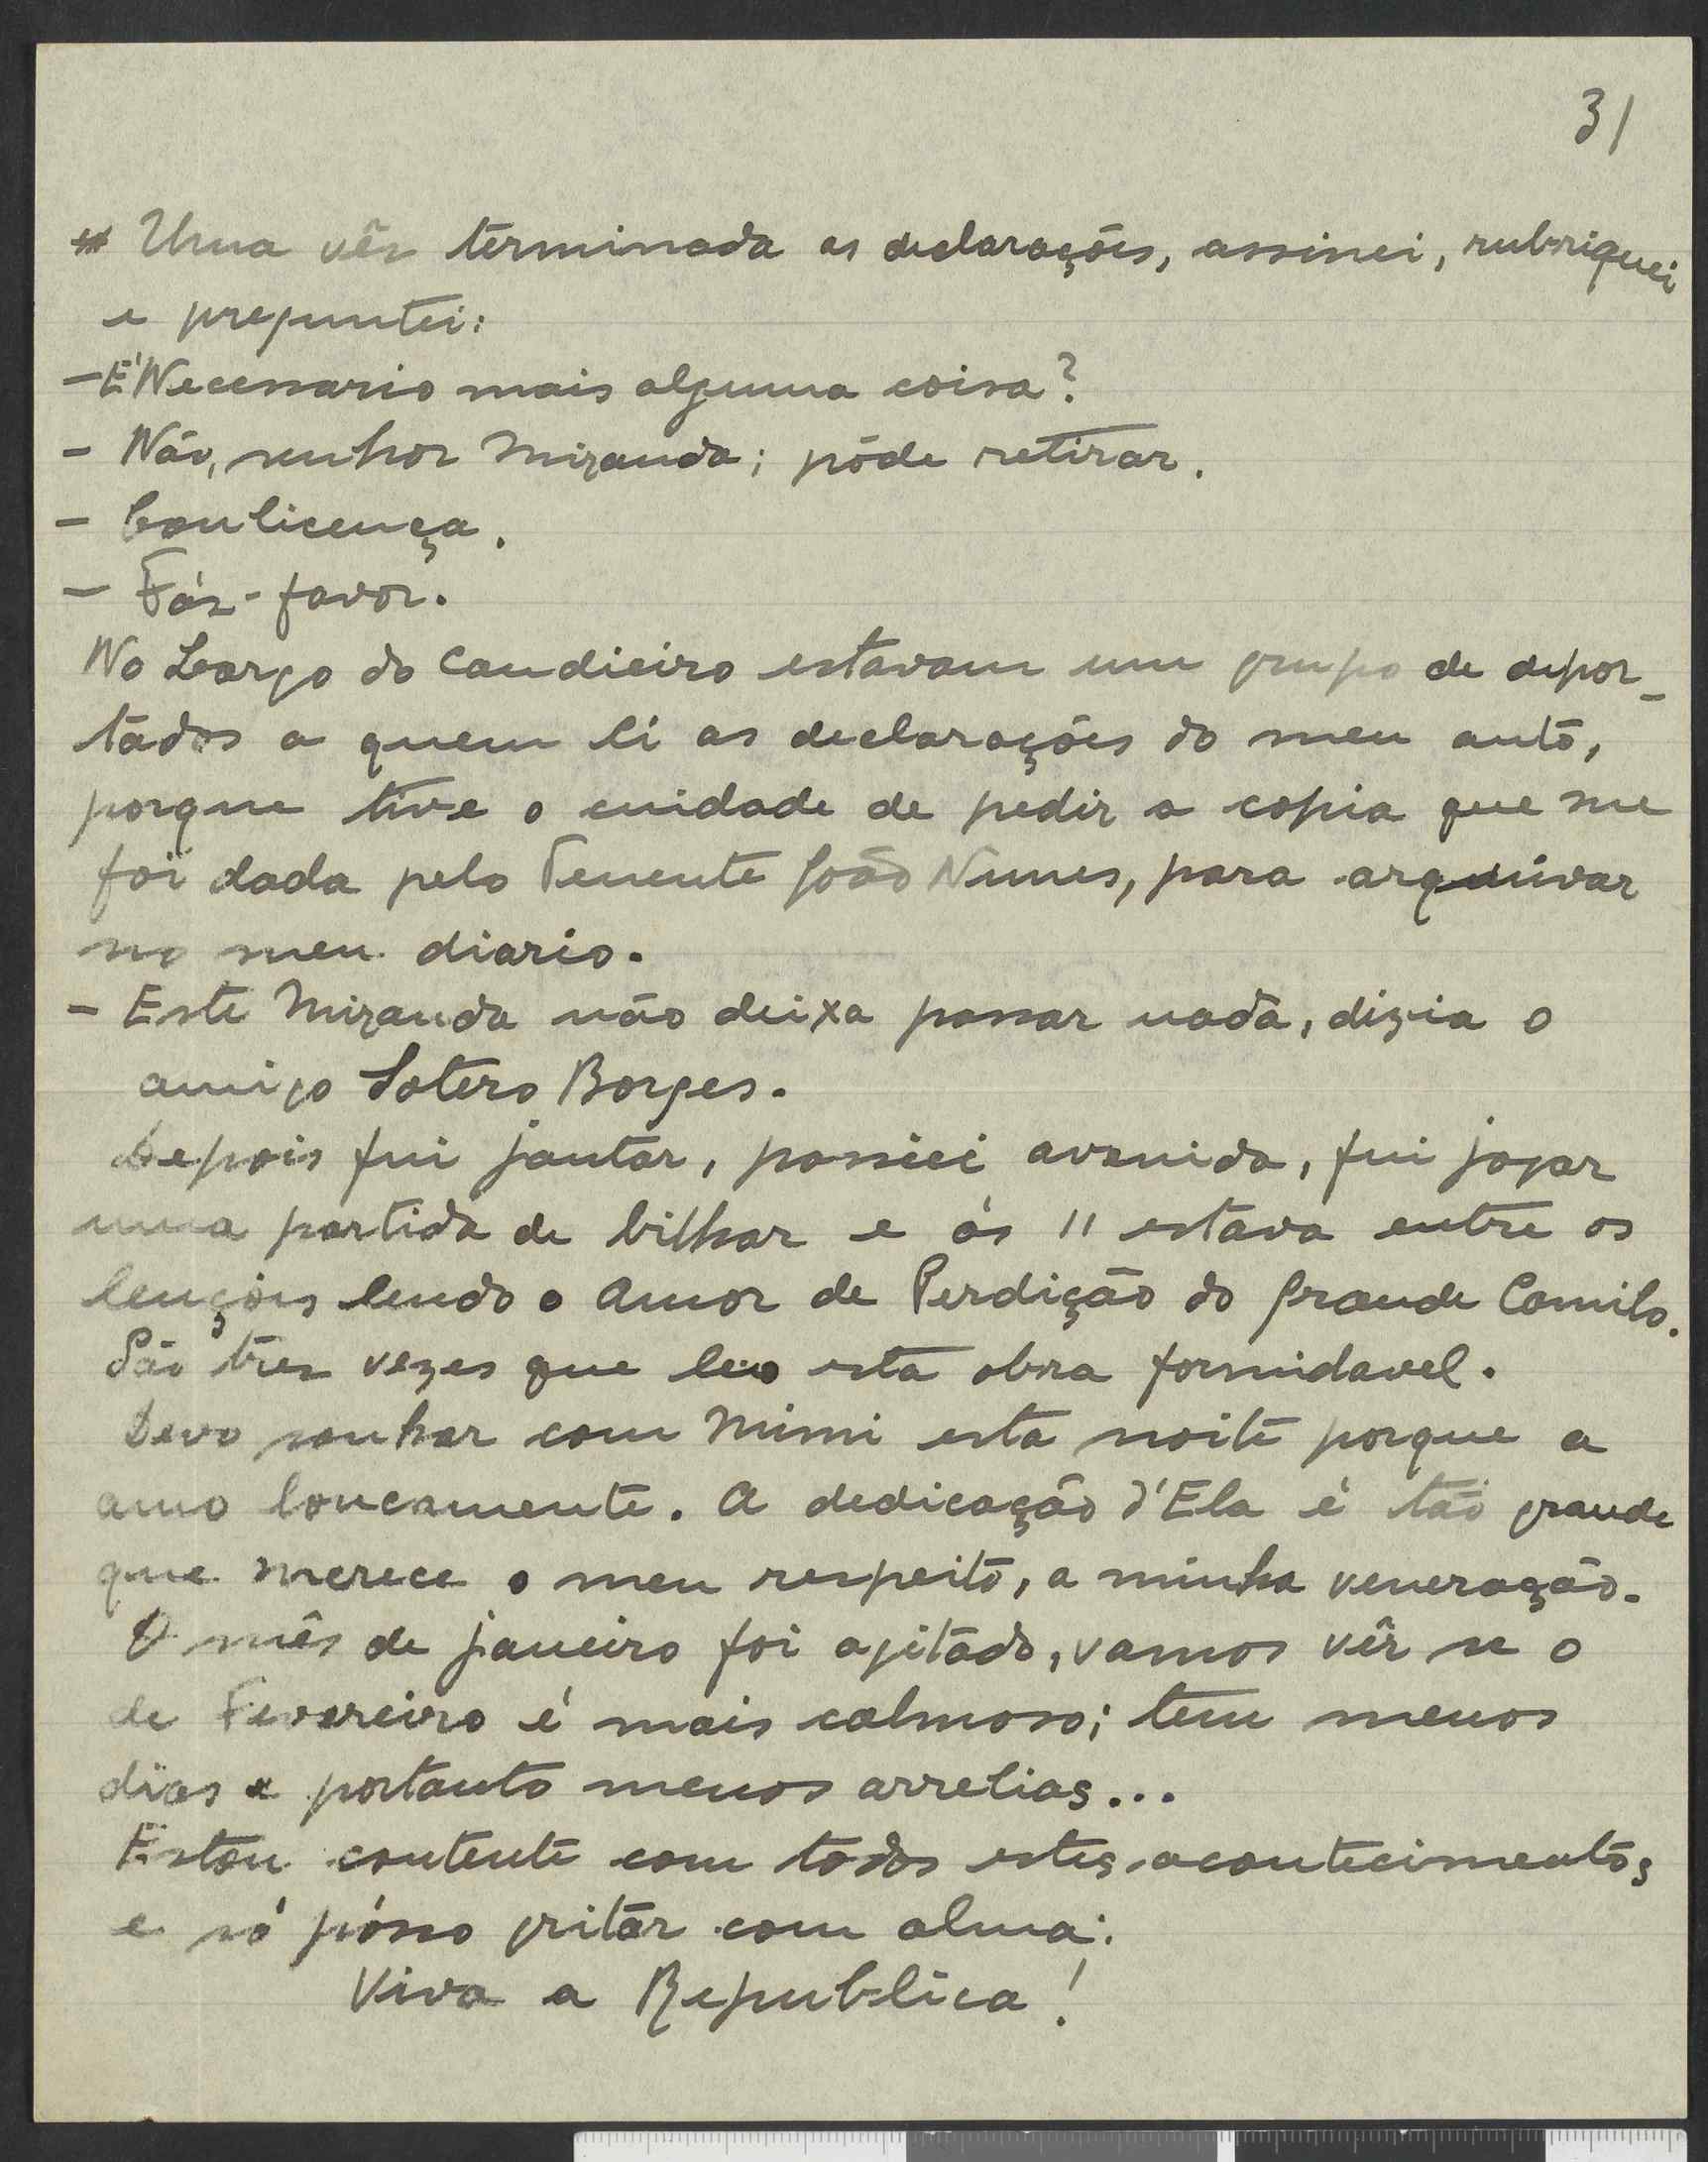 31
Uma vês terminada as declarações, assinei, rubriquei
e preguntei:
- É Necessario mais alguma coisa?
- Não, senhor Miranda; póde retirar.
- Com licença.
- Fás-favor.
No Largo do Candieiro estavam um grupo de depor-
tados a quem li as declarações do meu auto,
porque tive o cuidade de pedir a copia que me
foi dada pelo Tenente João Nunes, para arquivar
no meu diario.
- Este Miranda não deixa passar nada, dizia o
amigo Sotero Borges.
Depois fui jantar, passiei avenida, fui jogar
uma partida de bilhar e ás 11 estava entre os
lençóis lendo o Amor de Perdição do grande Camilo.
São três vezes que leio esta obra formidavel.
Devo sonhar com Mimi esta noite porque a
amo loucamente. A dedicação d'Ela é tão grande
que merece o meu respeito, a minha veneração.
O mês de janeiro foi agitado, vamos vêr se o
de Fevereiro é mais calmoso; tem menos
dias e portanto menos arrelias...
Estou contente com todos estes acontecimentos
e só pósso gritar com alma:
Viva a Republica!